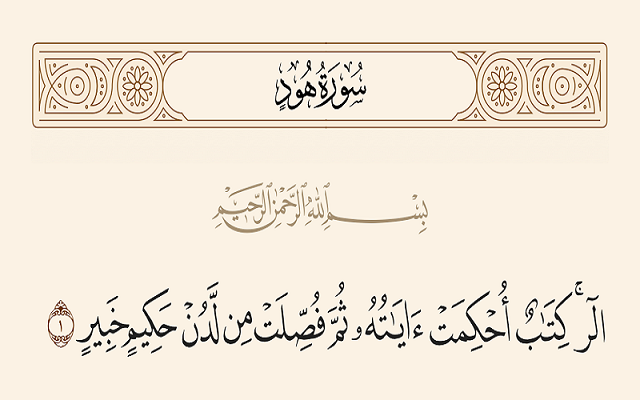 سُورَةُ هُودٍ
بِسْمِ اللَّهِ الرَّحْمَٰنِ الرَّحِيمِ
الٓرۚ كِتَٰبٌ أُحْكِمَتْ ءَايَٰتُهُۥ ثُمَّ فُصِّلَتْ مِن لَّدُنْ حَكِيمٍ خَبِيرٍ ١